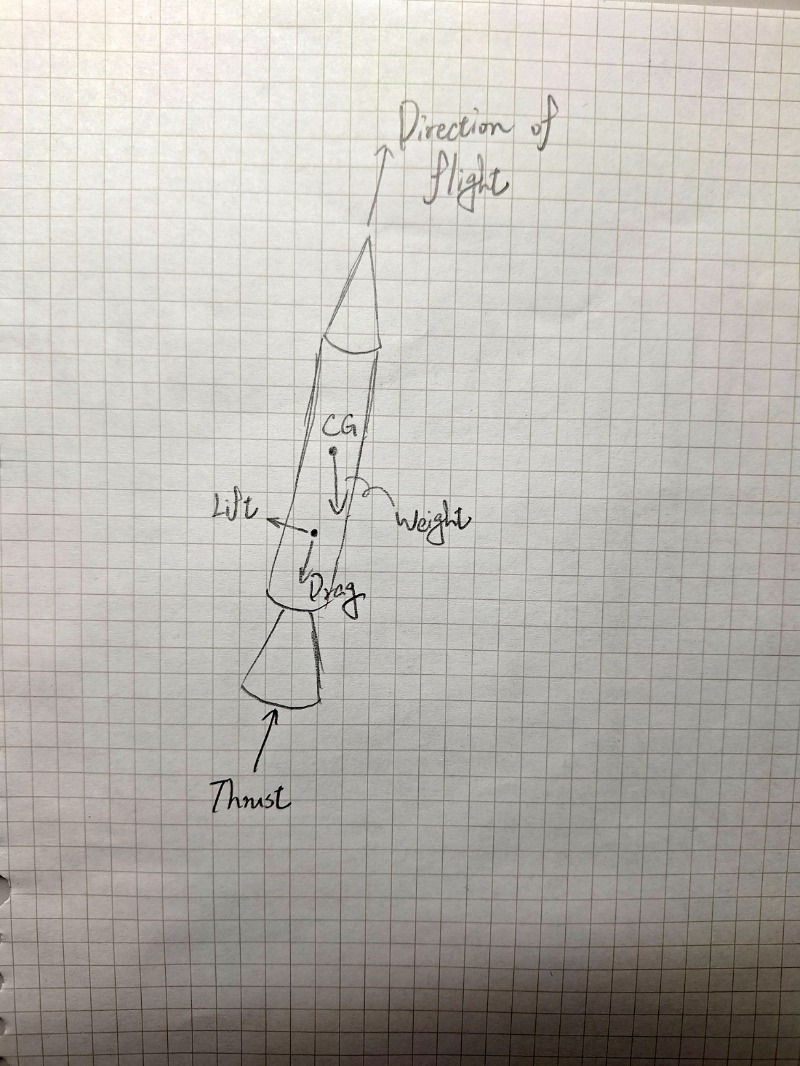 Direction of
flight
CG
Lift
Weight
Drag
Thrust